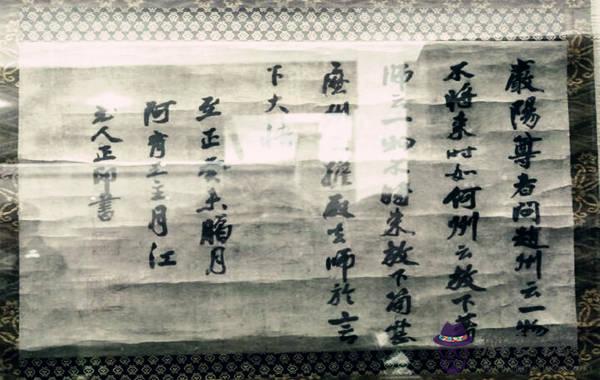 嚴陽尊者問趙州云一物
不將来時如何州云放下著
師云一物不將来放下箇甚
麼州擔取去師於言
下大悟
至正癸未臘月
阿育王主月江
老人正印書